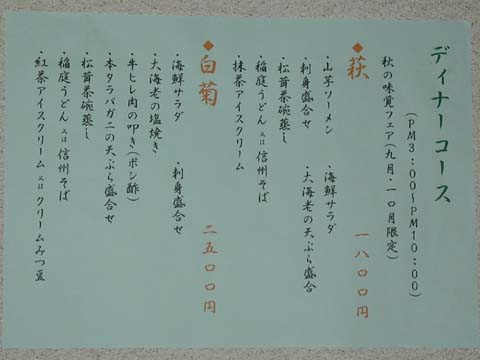 ディナーコース
(PM3:00~PM10:00)
秋の味覚フェア(九月・一〇月限定)
◆萩 一八〇〇円
・山芋ソーメン ・海鮮サラダ
・刺身盛合せ ・大海老の天ぷら盛合
・松茸茶碗蒸し
・稲庭うどん 又は 信州そば
・抹茶アイスクリーム
◆白菊 二五〇〇円
・海鮮サラダ ・刺身盛合せ
・大海老の塩焼き
・牛ヒレ肉の叩き(ポン酢)
・本タラバガニの天ぷら盛合せ
・松茸茶碗蒸し
・稲庭うどん 又は 信州そば
・紅茶アイスクリーム 又は クリームみつ豆